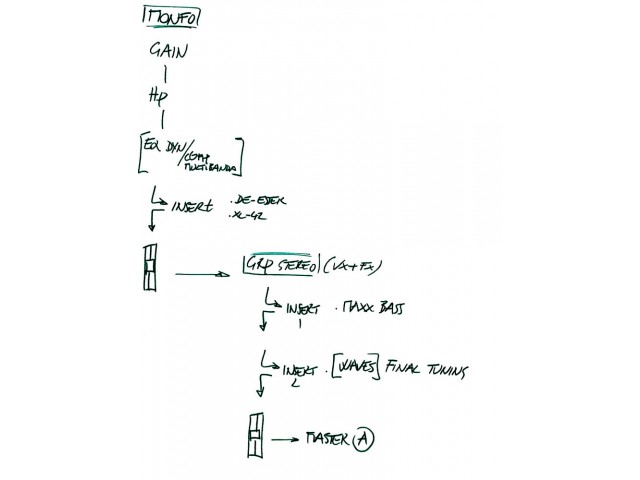 MONFO
GAIN
HP
EQ DYN/COMP
MULTIBANDA
INSERT .DE-ESSER
.XL-42
GRP STEREO (VX+FX)
INSERT . MAXX BASS
1
INSERT . [WAVES] FINAL TUNING
2
MASTER A